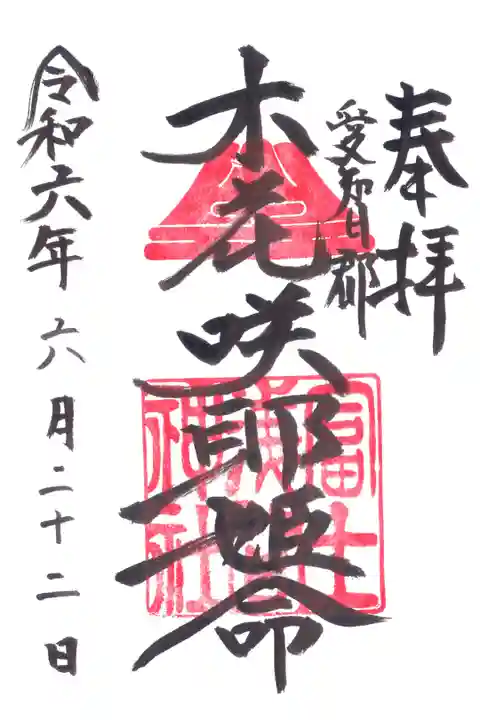 奉拝
愛智郡
木花咲耶姫命
富士
神社
令和六年 六月二十二日